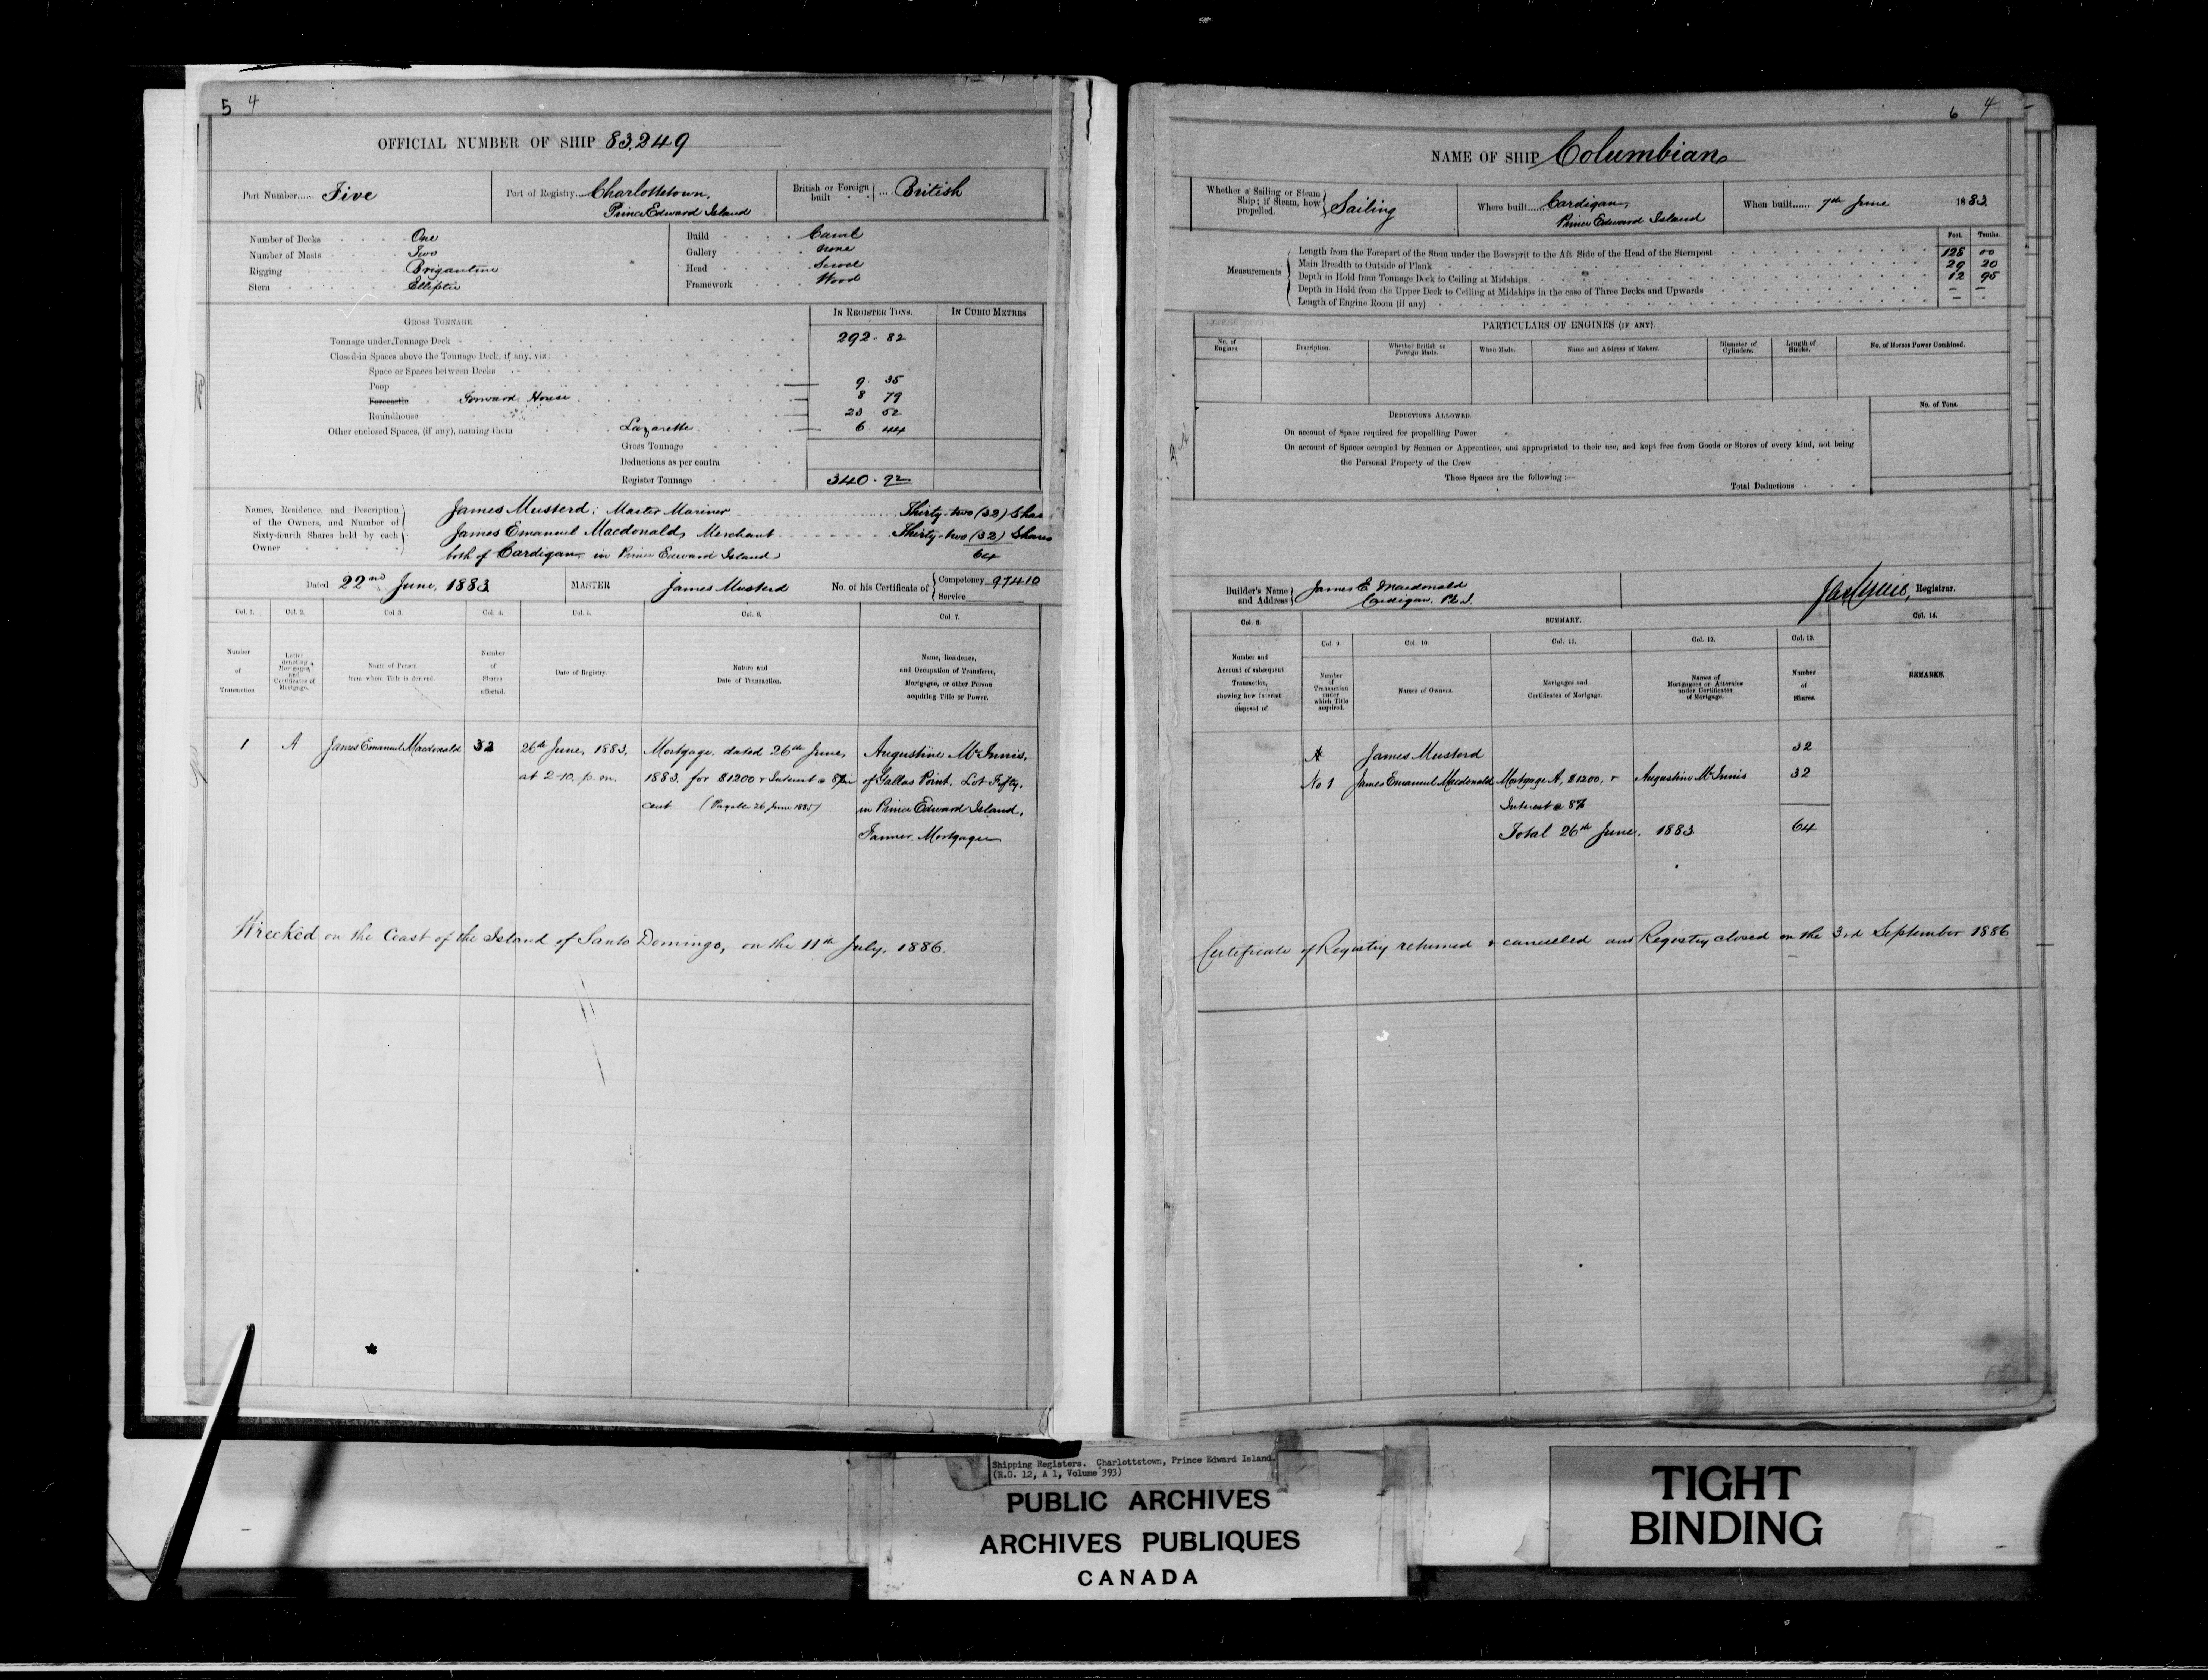 5 4
OFFICIAL NUMBER OF SHIP 83,249
Port Number..... Five
Port of Registry. Charlottetown,
Prince Edward Island
British or Foreign built .... British
Number of Decks One
Number of Masts Two
Rigging Brigantine
Stern Elliptic
Build Carvel
Gallery None
Head Scroll
Framework Wood
GROSS TONNAGE.
IN REGISTER TONS. IN CUBIC METRES
Tonnage under Tonnage Deck 292.82
Closed-in Spaces above the Tonnage Deck, if any, viz:
Space or Spaces between Decks
Poop 9 35
Forecastle Forward House 8 79
Roundhouse 23.52
Other enclosed Spaces, (if any), naming them Lazarette 6 44
Gross Tonnage
Deductions as per contra
Register Tonnage 340.92
Names, Residence, and Description
of the Owners, and Number of
Sixty-fourth Shares held by each
Owner
James Musterd; Master Mariner Thirty-two (32) Shar
James Emanuel Macdonald, Merchant Thirty-two (32) Shares
both of Cardigan in Prince Edward Island 64
Dated 22nd June, 1883 MASTER James Musterd No. of his Certificate of Competency 97410
Service
Col. 1. Col. 2. Col 3. Col. 4. Col. 5. Col. 6. Col. 7.
Number of Transaction
Letter denoting Mortgages, and Certificates of Mortgage.
Name of Person from whom Title is derived.
Number of Shares affected.
Date of Registry.
Nature and Date of Transaction.
Name, Residence, and Occupation of Transferee, Mortgagee, or other Person acquiring Title or Power.
1 A James Emanuel Macdonald 32 26th June, 1883, Mortgage, dated 26th June, Augustine McInnis,
at 2-10. p.m. 1883. for $1200 & Interest @ 8 per of Gallas Point, Lot Fifty,
cent (Payable 26 June 1885) in Prince Edward Island,
Farmer. Mortgagee
Wrecked on the Coast of the Island of Santo Domingo, on the 11th July, 1886.
6 4
NAME OF SHIP Columbian
Whether a Sailing or Steam Ship; if Steam, how propelled. Sailing
Where built..... Cardigan,
Prince Edward Island
When built...... 7th June 1883
Feet. Tenths.
Measurements
Length from the Forepart of the Stem under the Bowsprit to the Aft Side of the Head of the Sternpost 128 00
Main Breadth to Outside of Plank 29 20
Depth in Hold from Tonnage Deck to Ceiling at Midships 12 95
Depth in Hold from the Upper Deck to Ceiling at Midships in the case of Three Decks and Upwards — —
Length of Engine Room (if any) — —
PARTICULARS OF ENGINES (IF ANY).
No. of Engines. Description. Whether British or Foreign Made. When Made. Name and Address of Makers. Diameter of Cylinders. Length of Stroke. No. of Horses Power Combined.
DEDUCTIONS ALLOWED. No. of Tons.
On account of Space required for propellling Power
On account of Spaces occupied by Seamen or Apprentices, and appropriated to their use, and kept free from Goods or Stores of every kind, not being
the Personal Property of the Crew
These Spaces are the following:—
Total Deductions
Builder's Name and Address James E. Macdonald
Cardigan. P.E.I.
Registrar.
Col. 8. SUMMARY. Col. 14.
Col. 9. Col. 10. Col. 11. Col. 12. Col. 13.
Number and Account of subsequent Transaction, showing how Interest disposed of.
Number of Transaction under which Title acquired.
Names of Owners.
Mortgages and Certificates of Mortgage.
Names of Mortgagees or Attornies under Certificates of Mortgage.
Number of Shares.
REMARKS.
James Musterd 32
No 1 James Emanuel Macdonald Mortgage A, $1200, & Augustine McInnis 32
Interest @ 8%
Total 26th June, 1883 64
Certificate of Registry returned & cancelled and Registry closed on the 3rd September 1886
Shipping Registers. Charlottetown, Prince Edward Island.
(R.G. 12, A 1, Volume 393)
PUBLIC ARCHIVES
ARCHIVES PUBLIQUES
CANADA
TIGHT
BINDING